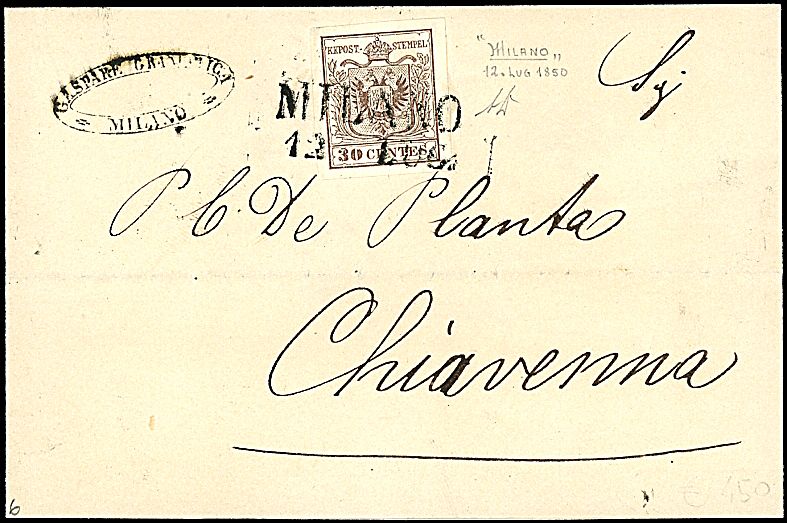 GASPARE
MILANO
KKPOST-STEMPEL
30 CENTES.
MILANO
12 LUG.
"MILANO"
12. LUG 1850
Sig
P C. De Planta
Chiavenna
€ 450
6